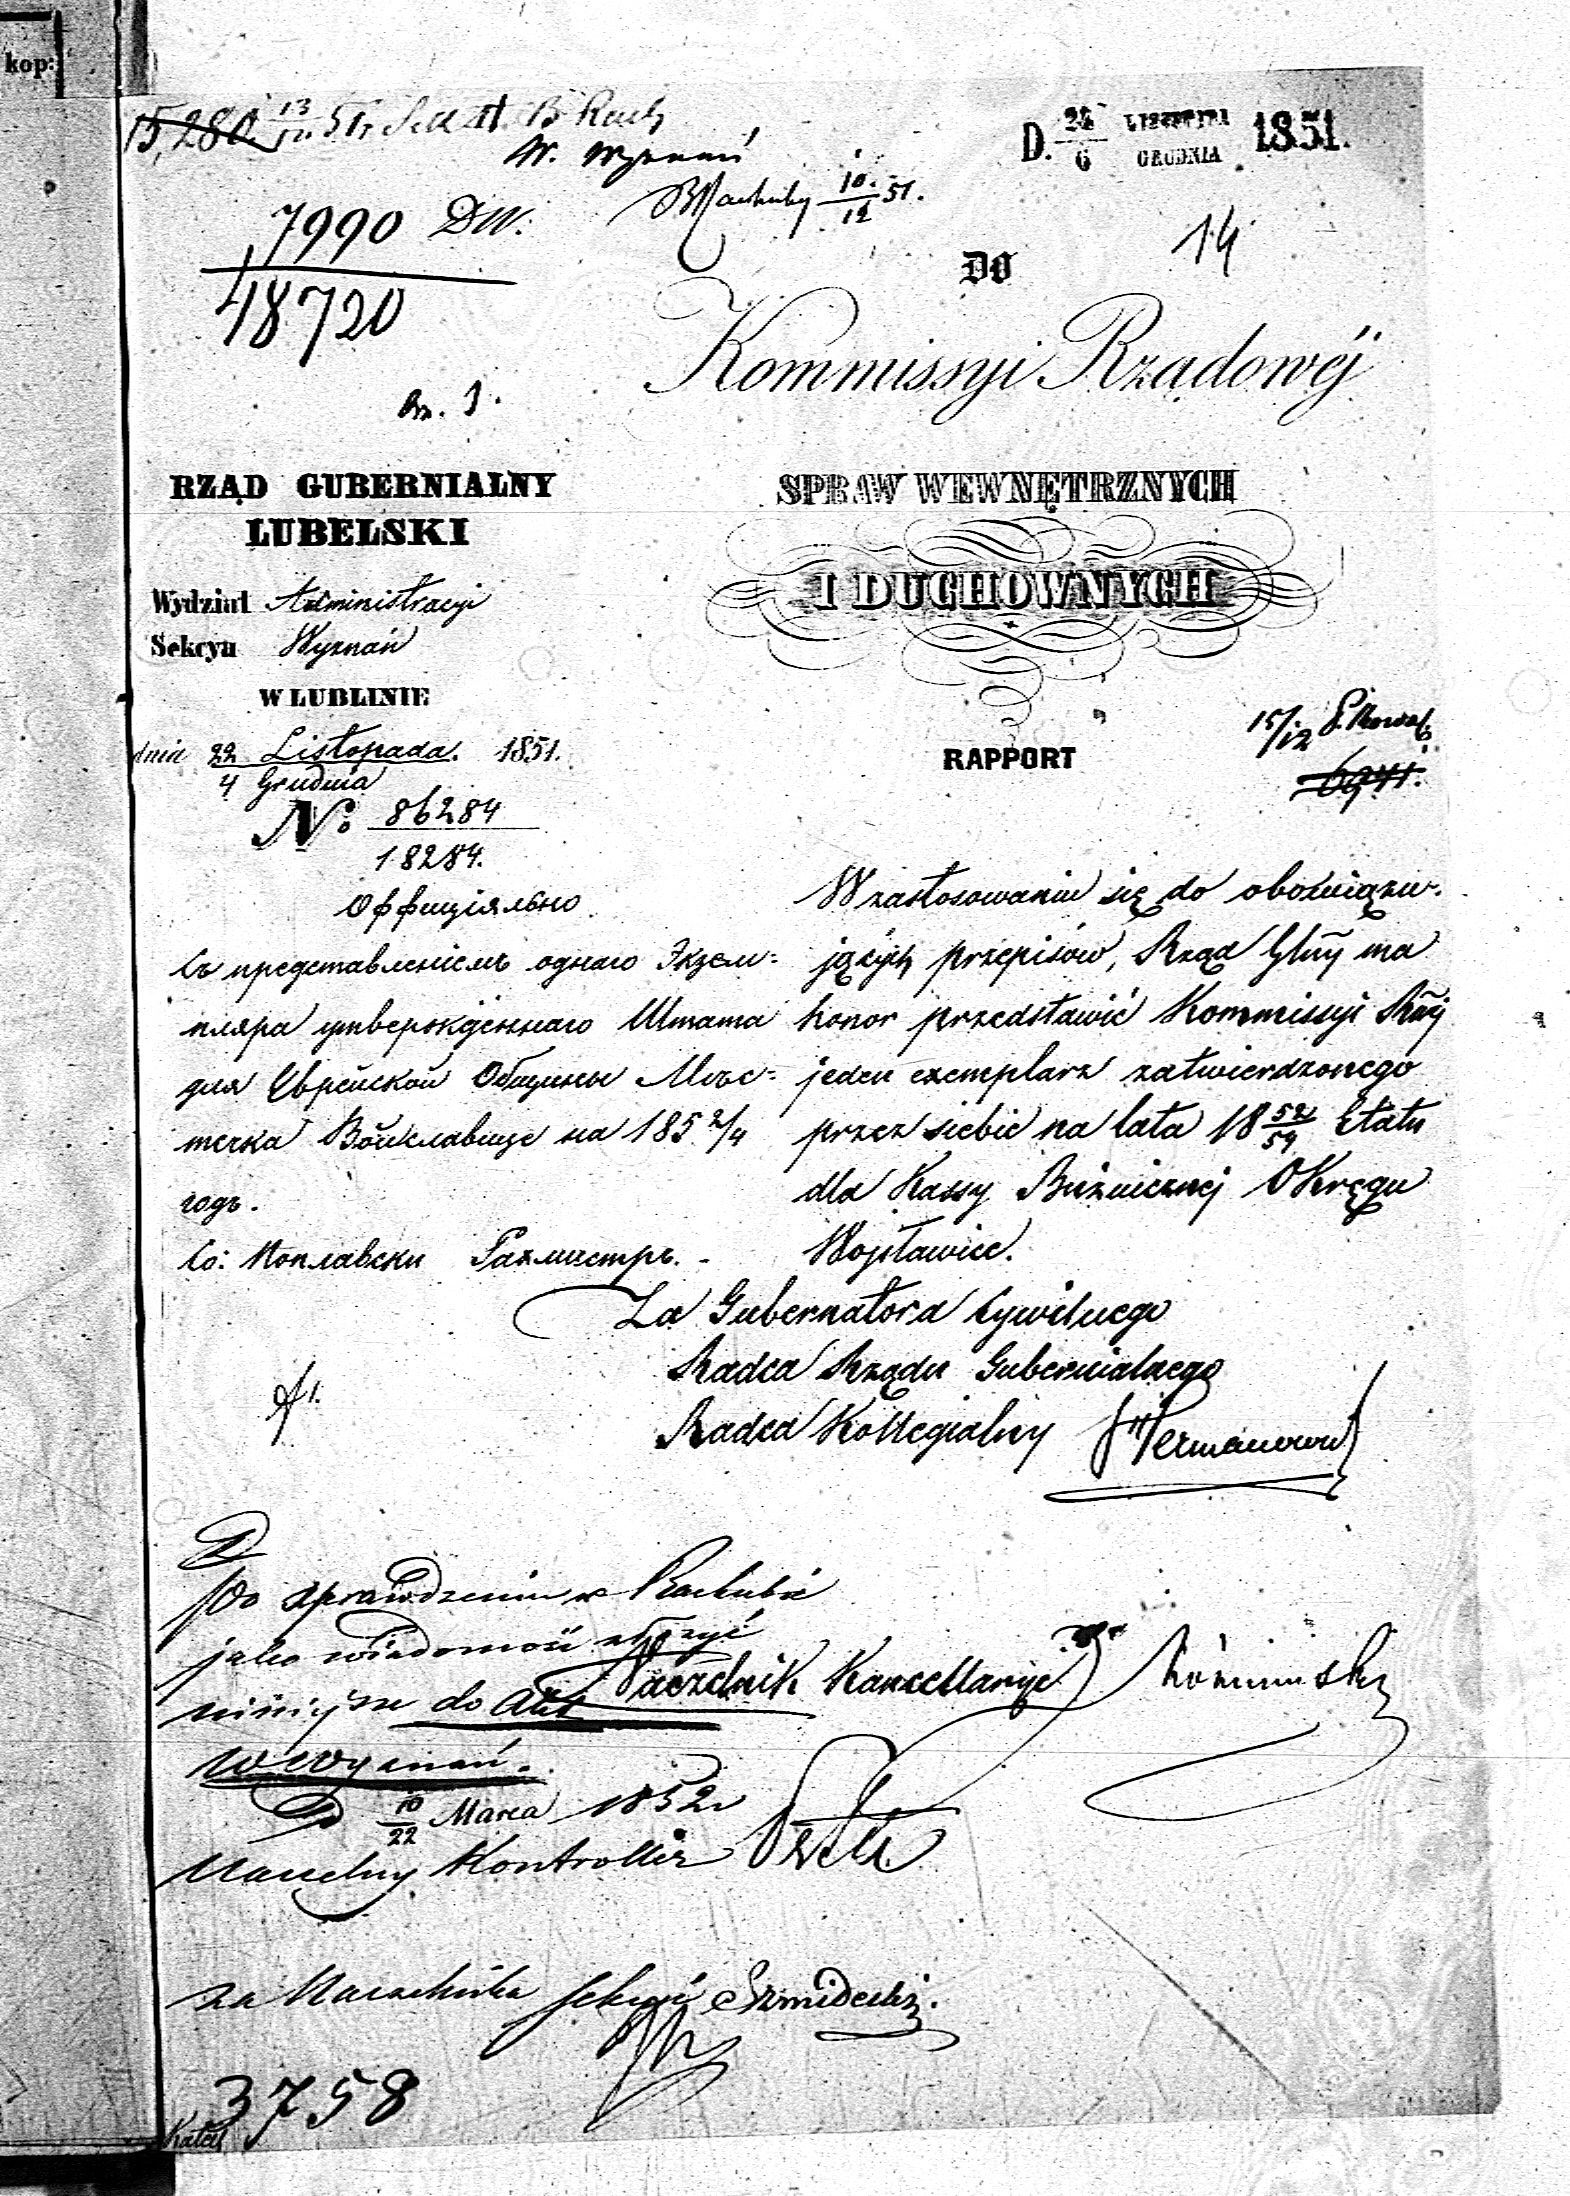 kop:
15,280 13/12 51
W. Wyznań
10/12 51.
D. 24/6 LISTOPADA GRUDNIA 1851.
7990 DW.
48720
14
DO
Kommissyi Rządowéj
RZĄD GUBERNIALNY
LUBELSKI
SPRAW WEWNĘTRZNYCH
I DUCHOWNYCH
Wydział Administracyi
Sekcya Wyznań
W LUBLINIE
dnia 22 Listopada 1851.
4 Grudnia
No 86284
18284.
RAPPORT
15/12
6941.
Оффиціяльно
Съ представленіемъ однаго Экзем=
пляра утвержденнаго Штата
для Еврейской Общины Мѣс=
течка Войславице на 185 2/4
годъ.
Со: Поплавски Рахмистръ.
W zastosowaniu się do obowiązu-
jących przepisów, Rząd Glny ma
honor przedstawić Kommissyi Rząj
jeden exemplarz zatwierdzonego
przez siebie na lata 18 52/54 Etatu
dla Kassy Bużniczney Okręgu
Wojsławice.
Za Gubernatora Cywilnego
Radca Rządu Gubernialnego
Radca Kollegialny
Po sprawdzeniu w Rachubie
jako wiadomość złożyć
niniejsze do Akt
W Wyznań.
D 10/22 Marca 1852
Naczelnik Kancellaryi
Naczelny Kontroller
za Naczelnika Sekcyi Szmidecki.
3758